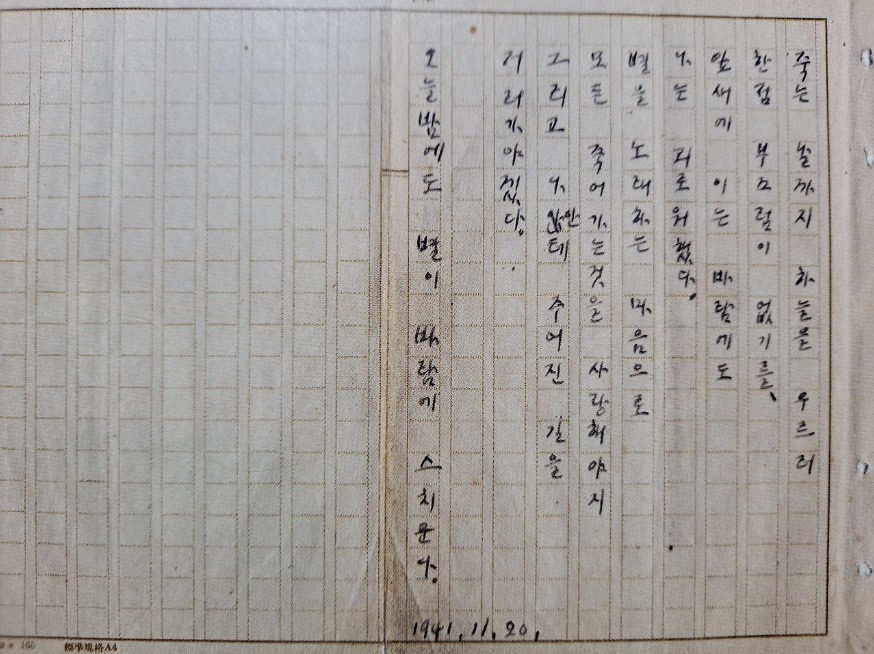 죽는 날까지 하늘을 우르러
한점 부끄럼이 없기를、
잎새에 이는 바람에도
나는 괴로워했다.
별을 노래하는 마음으로
모든 죽어가는것을 사랑해야지
그리고 나안테 주어진 길을
거러가야겠다.
오늘밤에도 별이 바람에 스치운다.
1941.11.20.
標準規格A4